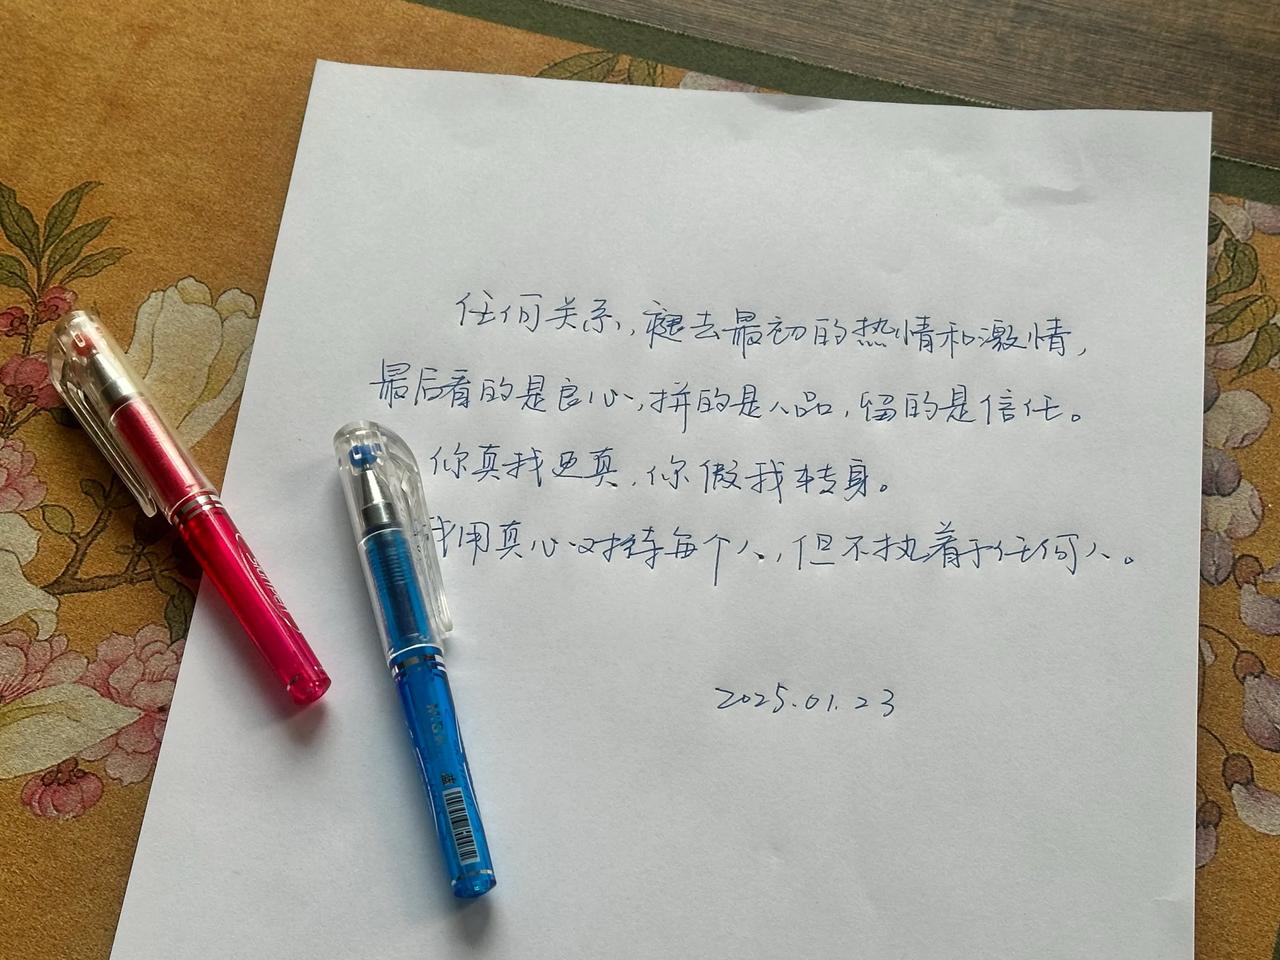 任何关系,褪去最初的热情和激情,
最后看的是良心,拼的是人品,留的是信任。
你真我更真,你假我转身。
我用真心对待每个人,但不执着于任何人。
2025.01.23
蓝